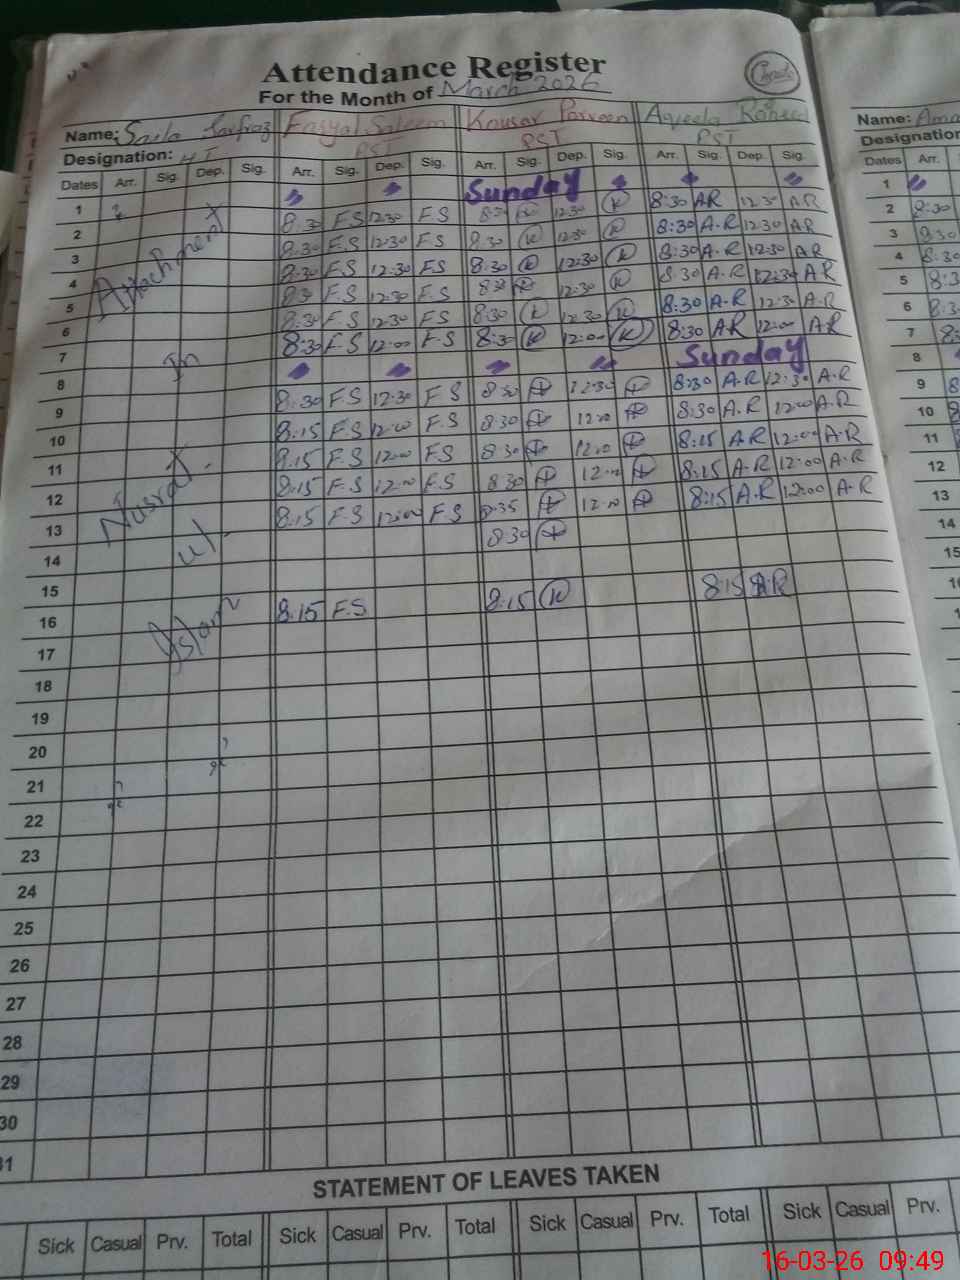 Attendance Register
For the Month of March 2026
Name: Saila Sarfraz Fasyal Saleem Kousar Parveen Aqeela Raheem
Designation: HT PST PST PST
Dates Arr. Sig. Dep. Sig. Arr. Sig. Dep. Sig. Arr. Sig. Dep. Sig. Arr. Sig. Dep. Sig.
1 " " Sunday " " "
2 8:30 F.S 12:30 F.S 8:30 K 12:30 K 8:30 AR 12:30 AR
3 8:30 F.S 12:30 F.S 8:30 K 12:30 K 8:30 A.R 12:30 AR
4 8:30 F.S 12:30 F.S 8:30 K 12:30 K 8:30 A.R 12:30 AR
5 8:30 F.S 12:30 F.S 8:30 K 12:30 K 8:30 A-R 12:30 AR
6 8:30 F.S 12:30 F.S 8:30 K 12:30 K 8:30 A-R 12:30 A-R
7 8:30 F.S 12:00 F.S 8:30 K 12:00 K 8:30 AR 12:00 AR
8 " " " " Sunday
9 8:30 F.S 12:30 F.S 8:30 12:30 8:30 A.R 12:30 A.R
10 8:15 F.S 12:00 F.S 8:30 12:00 8:30 A.R 12:00 A.R
11 8:15 F.S 12:00 F.S 8:30 12:00 8:15 AR 12:00 A-R
12 8:15 F.S 12:00 F.S 8:30 12:00 8:15 A-R 12:00 A.R
13 8:15 F.S 12:00 F.S 8:35 12:00 8:15 A.R 12:00 A-R
14 8:30
15
16 8:15 F.S 8:15 K 8:15 A.R
17
18
19
20
21
22
23
24
25
26
27
28
29
30
31
Attachment
In
Nusrat
ul
Islam
STATEMENT OF LEAVES TAKEN
Sick Casual Prv. Total Sick Casual Prv. Total Sick Casual Prv. Total Sick Casual Prv.
Name: Ama
Designation
Dates Arr.
1 "
2 8:30
3 8:30
4 8:30
5 8:3
6 8:3
7 8:3
8
9 8
10 8
11 8
12
13
14
15
16-03-26 09:49